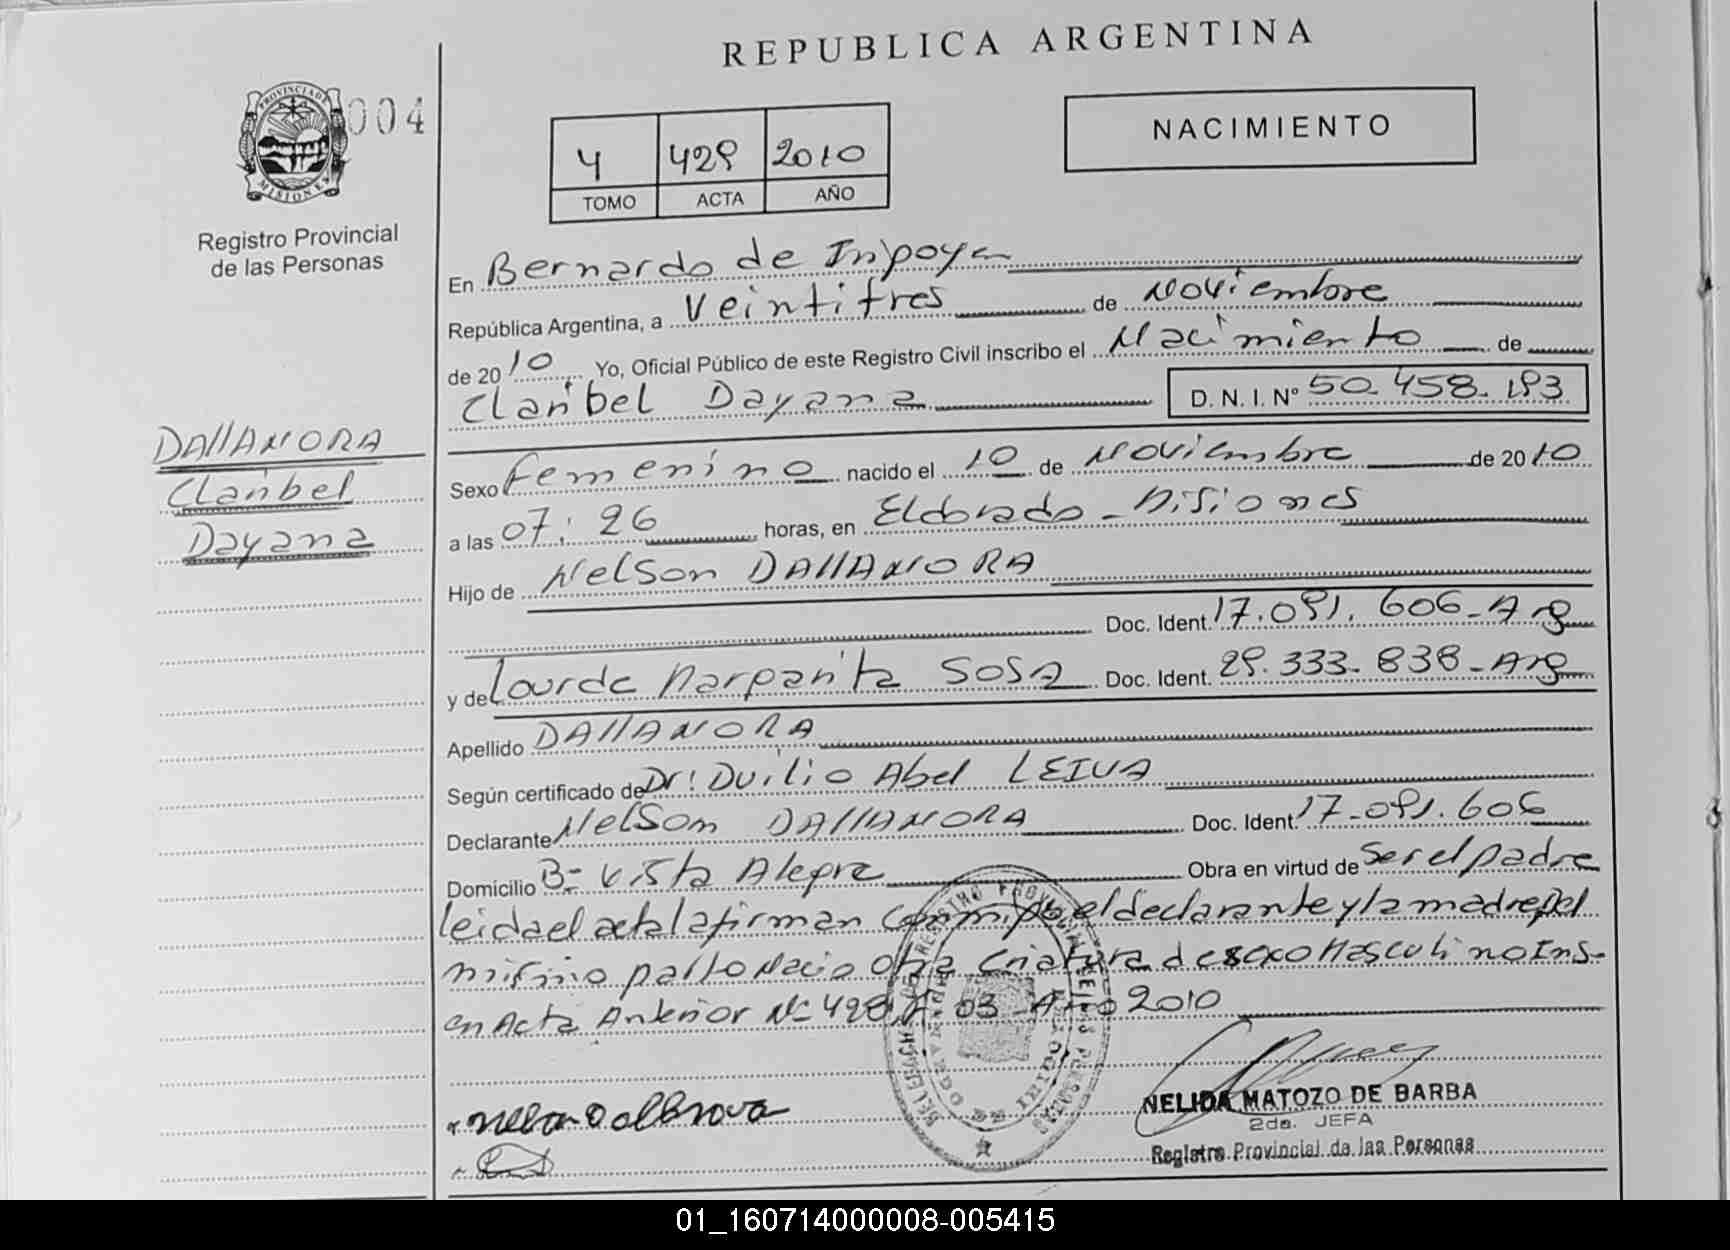 REPUBLICA ARGENTINA
PROVINCIA DE
MISIONES
004
Registro Provincial
de las Personas
4 429 2010
TOMO ACTA AÑO
NACIMIENTO
En Bernardo de Irigoyen
República Argentina, a Veintitres de Noviembre
de 2010. Yo, Oficial Público de este Registro Civil inscribo el Nacimiento de
Claribel Dayana D. N. I. Nº 50.458.193
DALLANORA
Claribel
Dayana
Sexo Femenino nacido el 10 de Noviembre de 2010
a las 07:26 horas, en Eldorado - Misiones
Hijo de Nelson DALLANORA
Doc. Ident. 17.091.606-Arg
y de Lourde Margarita SOSA Doc. Ident. 29.333.838-Arg
Apellido DALLANORA
Según certificado de Dr: Duilio Abel LEIVA
Declarante Nelson DALLANORA Doc. Ident. 17.091.606
Domicilio Bº Vista Alegre Obra en virtud de ser el padre
leida el acta la firman conmigo el declarante y la madre del
mismo parto Nacio otra Criatura de sexo Masculino Ins-
en Acta Anterior Nº 428 Tº 03 Año 2010
NELIDA MATOZO DE BARBA
2da. JEFA
Registro Provincial de las Personas
01_160714000008-005415